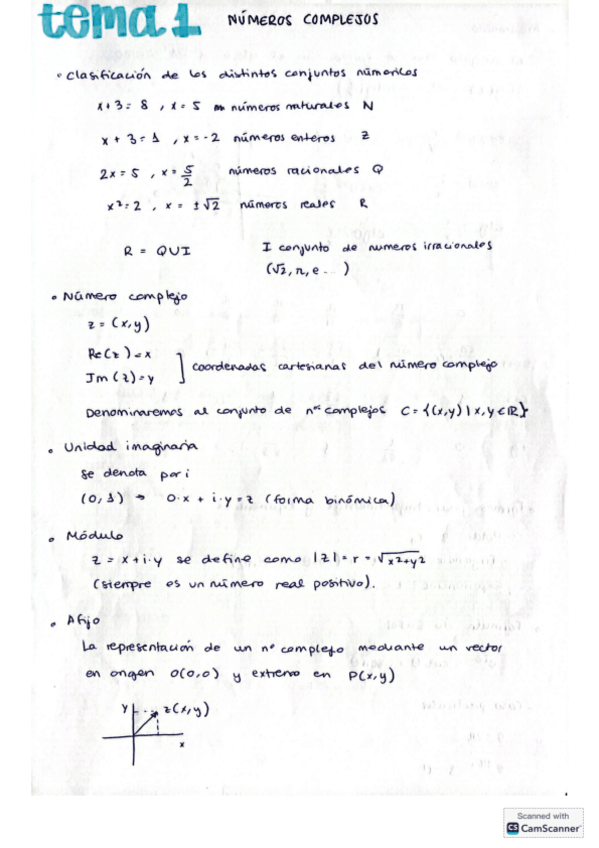 tema 1 NÚMEROS COMPLEJOS
• Clasificación de los distintos conjuntos númericos
x+3=8 , x=5 números naturales N
x+3=1 , x=-2 números enteros Z
2x=5 , x=5/2 números racionales Q
x²=2 , x=±√2 números reales R
R = QUI I conjunto de numeros irracionales
(√2, π, e... )
• Número complejo
z=(x,y)
Re(z)=x
Jm(z)=y ] coordenadas cartesianas del número complejo
Denominaremos al conjunto de nºˢ complejos C={(x,y)|x,y∈ℝ}
• Unidad imaginaria
Se denota por i
(0,1) → 0·x + i·y=z (forma binómica)
• Módulo
z=x+i·y se define como |z|=r=√x²+y²
(siempre es un número real positivo).
• Afijo
La representación de un nº complejo mediante un vector
en origen O(0,0) y extremo en P(x,y)
y z(x,y)
x
Scanned with
CS CamScanner